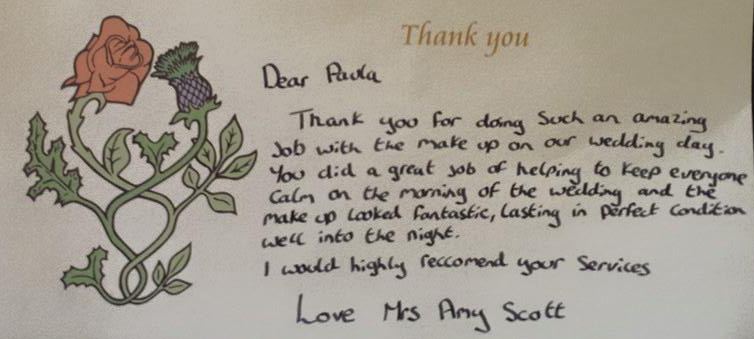 Thank you
Dear Paula
Thank you for doing such an amazing
Job with the make up on our wedding day.
You did a great job of helping to keep everyone
calm on the morning of the wedding and the
make up looked fantastic, lasting in perfect condition
well into the night.
I would highly reccomend your services
Love Mrs Amy Scott